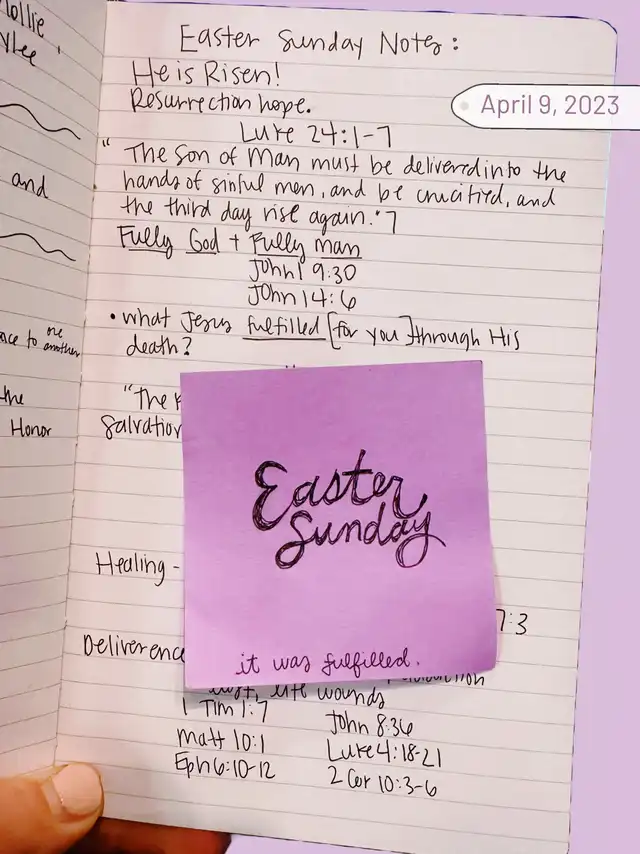 Mollie
and
one
another
the
Honor
Easter Sunday Notes:
He is Risen!
April 9, 2023
Resurrection hope.
Luke 24:1-7
" The Son of Man must be delivered into the
hands of sinful men, and be crucified, and
the third day rise again." 7
Fully God + Fully man
John 19:30
John 14:6
• what Jesus fulfilled [for you] through His
death?
"The
Salvation
Easter
Sunday
Healing -
7:3
Deliverance
it was fulfilled.
life wounds
1 Tim 1:7
John 8:36
Matt 10:1
Luke 4:18-21
Eph 6:10-12
2 Cor 10:3-6